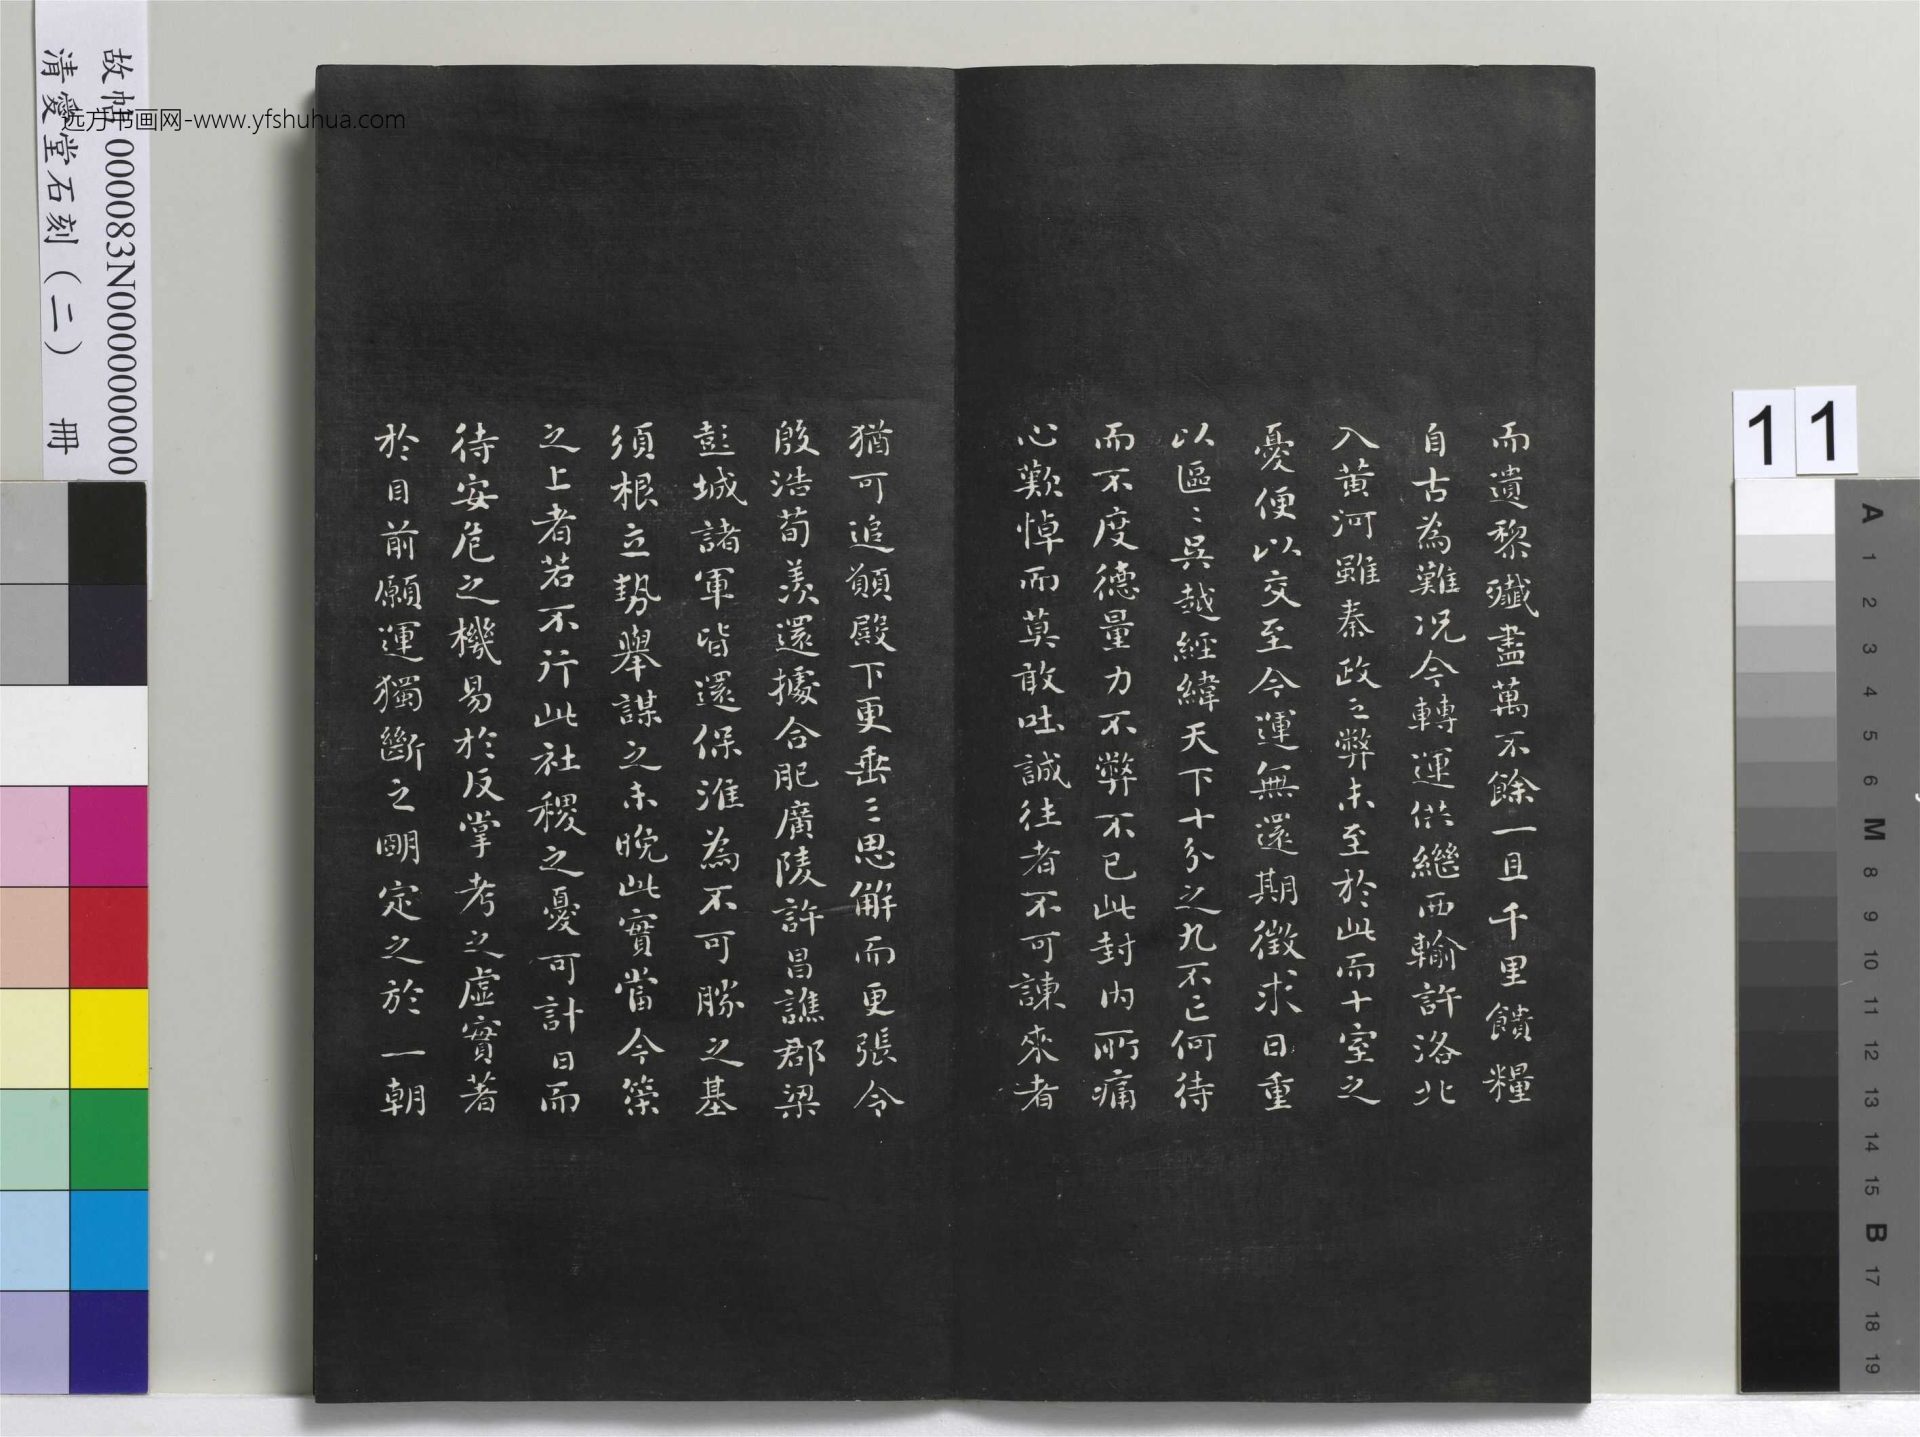 而遺黎殲盡萬不餘一且千里饋糧
自古為難況今轉運供繼西輸許洛北
入黃河雖秦政之弊未至於此而十室之
憂便以交至今運無還期徵求日重
以區〻吳越經緯天下十分之九不亡何待
而不度德量力不弊不已此封內所痛
心歎悼而莫敢吐誠往者不可諫來者
猶可追願殿下更垂三思解而更張令
殷浩荀羨還據合肥廣陵許昌譙郡梁
彭城諸軍皆還保淮為不可勝之基
須根立勢舉謀之未晚此實當今策
之上者若不行此社稷之憂可計日而
待安危之機易於反掌考之虛實著
於目前願運獨斷之明定之於一朝
故帖000083N000000000
清愛堂石刻（二） 冊
远方书画网-www.yfshuhua.com
11
A 1 2 3 4 5 6 M 8 9 10 11 12 13 14 15 B 17 18 19